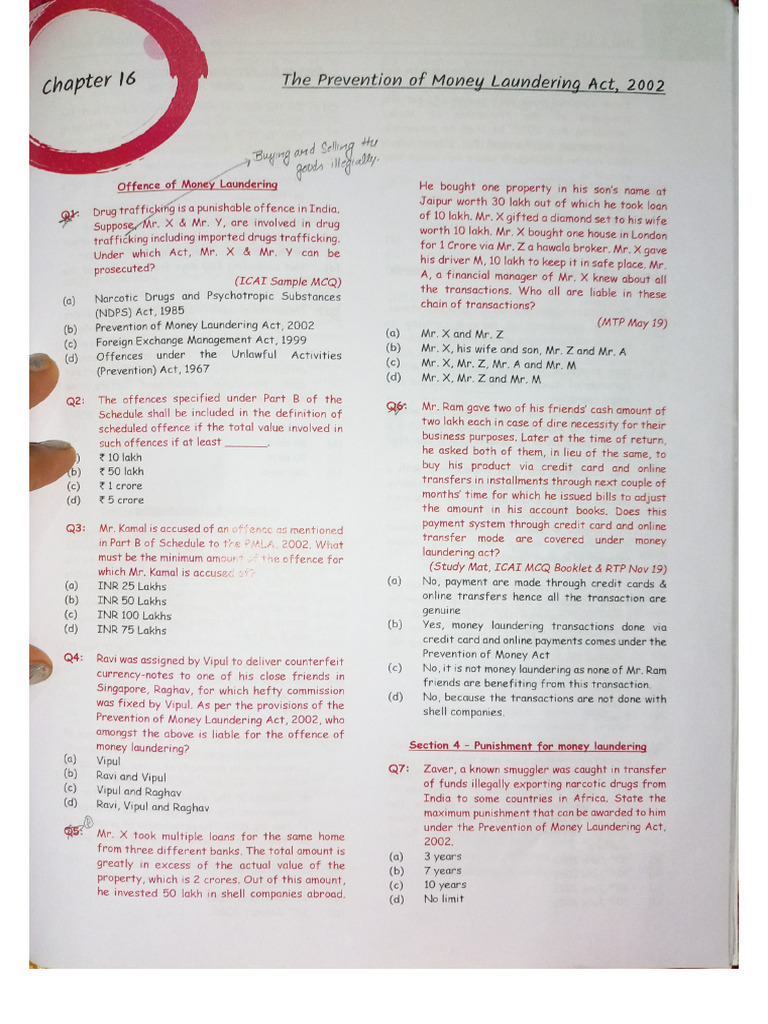 Chapter 16
The Prevention of Money Laundering Act, 2002
Buying and Selling the
goods illegially.
Offence of Money Laundering
Q1: Drug trafficking is a punishable offence in India.
Suppose, Mr. X & Mr. Y, are involved in drug
trafficking including imported drugs trafficking.
Under which Act, Mr. X & Mr. Y can be
prosecuted?
(ICAI Sample MCQ)
(a) Narcotic Drugs and Psychotropic Substances
(NDPS) Act, 1985
(b) Prevention of Money Laundering Act, 2002
(c) Foreign Exchange Management Act, 1999
(d) Offences under the Unlawful Activities
(Prevention) Act, 1967
Q2: The offences specified under Part B of the
Schedule shall be included in the definition of
scheduled offence if the total value involved in
such offences if at least _______.
₹ 10 lakh
(b) ₹ 50 lakh
(c) ₹ 1 crore
(d) ₹ 5 crore
Q3: Mr. Kamal is accused of an offence as mentioned
in Part B of Schedule to the PMLA, 2002. What
must be the minimum amount of the offence for
which Mr. Kamal is accused of?
(a) INR 25 Lakhs
(b) INR 50 Lakhs
(c) INR 100 Lakhs
(d) INR 75 Lakhs
Q4: Ravi was assigned by Vipul to deliver counterfeit
currency-notes to one of his close friends in
Singapore, Raghav, for which hefty commission
was fixed by Vipul. As per the provisions of the
Prevention of Money Laundering Act, 2002, who
amongst the above is liable for the offence of
money laundering?
(a) Vipul
(b) Ravi and Vipul
(c) Vipul and Raghav
(d) Ravi, Vipul and Raghav
Q5: Mr. X took multiple loans for the same home
from three different banks. The total amount is
greatly in excess of the actual value of the
property, which is 2 crores. Out of this amount,
he invested 50 lakh in shell companies abroad.
He bought one property in his son's name at
Jaipur worth 30 lakh out of which he took loan
of 10 lakh. Mr. X gifted a diamond set to his wife
worth 10 lakh. Mr. X bought one house in London
for 1 Crore via Mr. Z a hawala broker. Mr. X gave
his driver M, 10 lakh to keep it in safe place. Mr.
A, a financial manager of Mr. X knew about all
the transactions. Who all are liable in these
chain of transactions?
(MTP May 19)
(a) Mr. X and Mr. Z
(b) Mr. X, his wife and son, Mr. Z and Mr. A
(c) Mr. X, Mr. Z, Mr. A and Mr. M
(d) Mr. X, Mr. Z and Mr. M
Q6: Mr. Ram gave two of his friends' cash amount of
two lakh each in case of dire necessity for their
business purposes. Later at the time of return,
he asked both of them, in lieu of the same, to
buy his product via credit card and online
transfers in installments through next couple of
months' time for which he issued bills to adjust
the amount in his account books. Does this
payment system through credit card and online
transfer mode are covered under money
laundering act?
(Study Mat, ICAI MCQ Booklet & RTP Nov 19)
(a) No, payment are made through credit cards &
online transfers hence all the transaction are
genuine
(b) Yes, money laundering transactions done via
credit card and online payments comes under the
Prevention of Money Act
(c) No, it is not money laundering as none of Mr. Ram
friends are benefiting from this transaction.
(d) No, because the transactions are not done with
shell companies.
Section 4 - Punishment for money laundering
Q7: Zaver, a known smuggler was caught in transfer
of funds illegally exporting narcotic drugs from
India to some countries in Africa. State the
maximum punishment that can be awarded to him
under the Prevention of Money Laundering Act,
2002.
(a) 3 years
(b) 7 years
(c) 10 years
(d) No limit